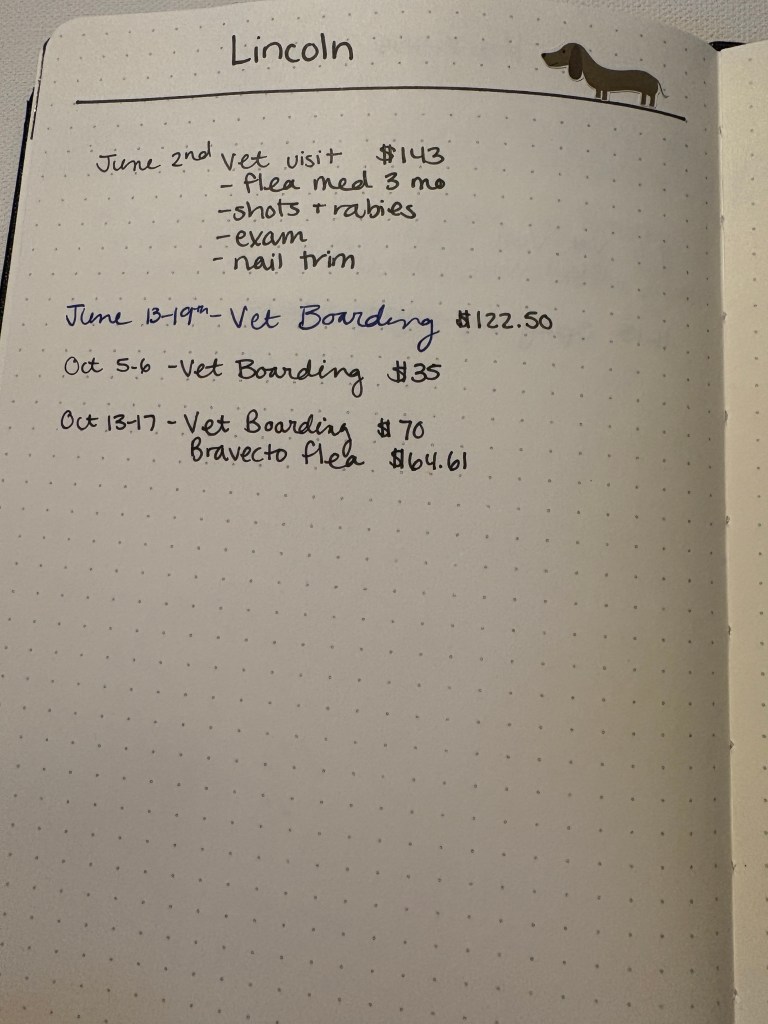 Lincoln
June 2nd Vet visit $143
- flea med 3 mo
- shots + rabies
- exam
- nail trim
June 13-19th - Vet Boarding $122.50
Oct 5-6 - Vet Boarding $35
Oct 13-17 - Vet Boarding $70
Bravecto flea $64.61